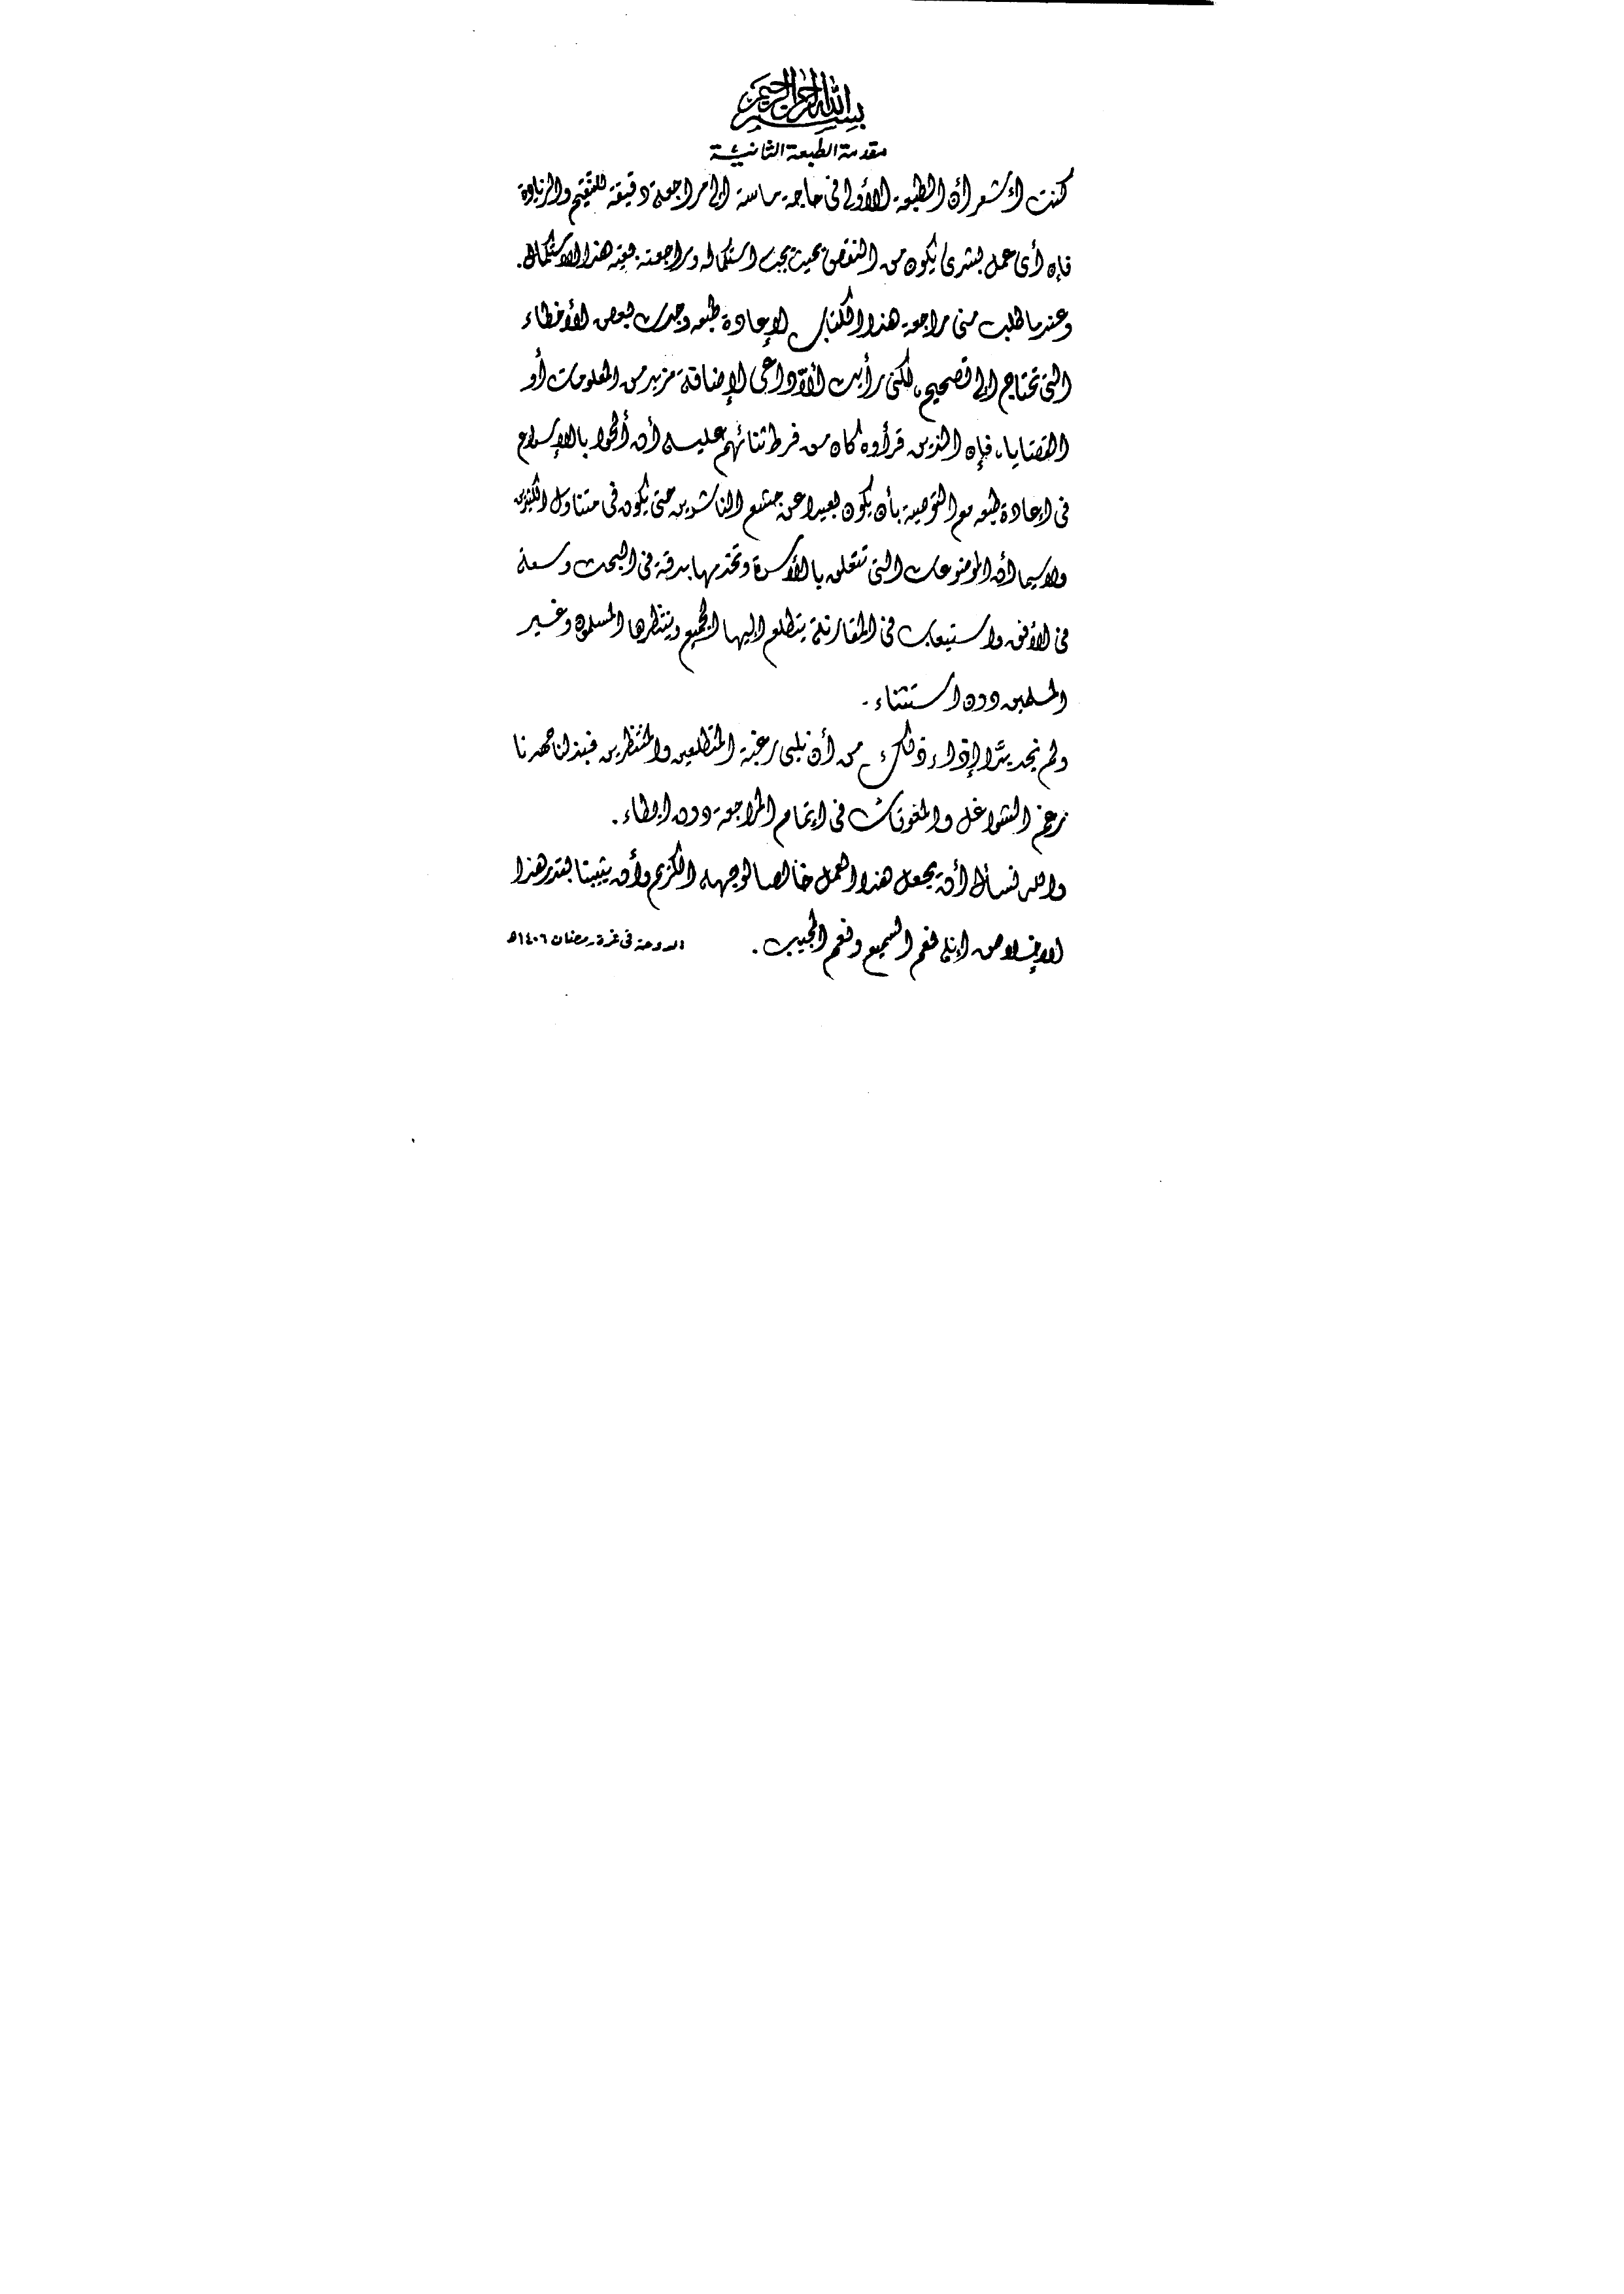 بسم الله الرحمن الرحيم
مقدمة الطبعة الثانية
كنت أشعر أن الطبعة الأولى فى حاجة ماسة إلى مراجعة دقيقة للتنقيح والزيادة
فإن أى عمل بشرى يكون من النقص بحيث يجب استكماله ومراجعته بغية هذا الاستكمال .
وعندما طلب منى مراجعة هذا الكتاب لإعادة طبعه وجدت بعض الأخطاء
التى تحتاج إلى تصحيح ، لكنى رأيت ألا داعى لإضافة مزيد من المعلومات أو
القضايا ، فإن الذين قرأوه كان من فرط ثنائهم عليه أن ألحوا بالإسراع
فى إعادة طبعه مع التوصية بأن يكون بعيدا عن جشع الناشرين حتى يكون فى متناول الكثيرين
ولاسيما أن الموضوعات التى تتعلق بالأسرة وتخدمها بدقة فى البحث وسعة
فى الأفق واستيعاب فى المقارنة يتطلع إليها الجميع وينتظرها المسلمون وغير
المسلمين دون استثناء .
ولم نجد بدًّا إزاء ذلك من أن نلبى رغبة المتطلعين والمنتظرين فبذلنا جهدنا
رغم الشواغل والمعوقات فى إتمام المراجعة دون إبطاء .
والله نسأل أن يجعل هذا العمل خالصا لوجهه الكريم وأن يثيبنا بقدر هذا
الإخلاص إنه نعم السميع ونعم المجيب . الدوحة فى غرة رمضان ١٤٠٦هـ